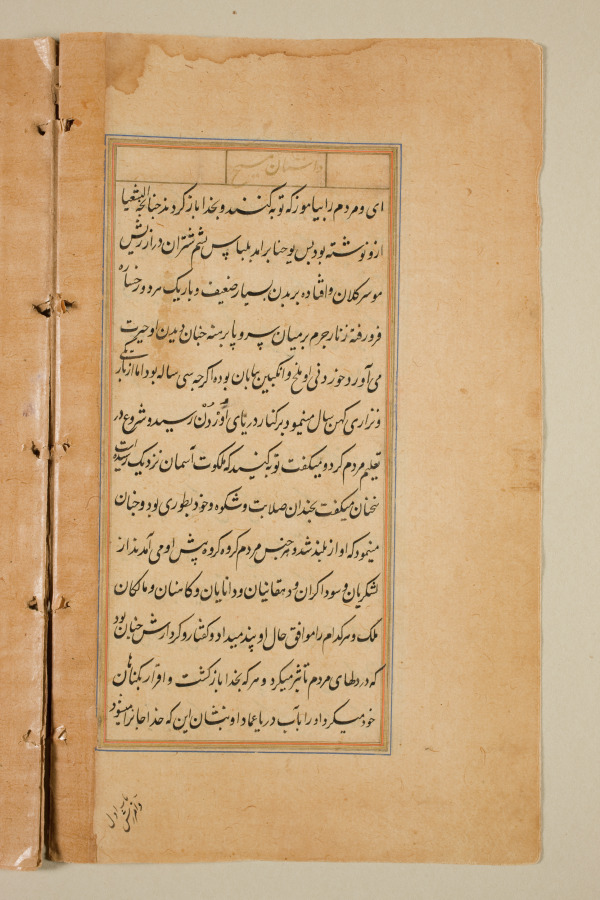 داستان مسیح
ای و مردم را بیاموز که توبه کنند و بخدا باز کردند چنانچه اشعیا
ازو نوشته بود پس یوحنا برآمد بلباس پشم شتران دراز ریش
موسر کلان وافتاده بر بدن بسیار ضعیف و باریک مردوز رخساره
فرورفته زنار چرم بر میان سر و پا برهنه چنان دیدن او حیرت
می آورد خوردنی او ملخ و انگبین بیابان بوده اکرچه سی ساله بود اما از تارکی
و نزاری کهن سال مینمود بر کنار دریای اوردن رسید و شروع در
تعلیم مردم کرد و میکفت توبه کنید که ملکوت آسمان نزدیک رسیده است
سخنان میکفت بچندان صلابت و شکوه و خود بطوری بود و چنان
مینمود که آواز بلند شد و هر جنس مردم کروه کروه پیش او می آمدند از
لشکریان و سوداکران و دهقانیان و دانایان و کاهنان و مالکان
ملک و هر کدام را موافق حال او پند میداد و کفتار و کردارش چنان بود
که در دلهای مردم تاثیر میکرد و هر که بخدا باز کشت و اقرار بکناهان
خود میکرد او را بآب دریا عماد او بنشان این که خدا جانرا میشوید